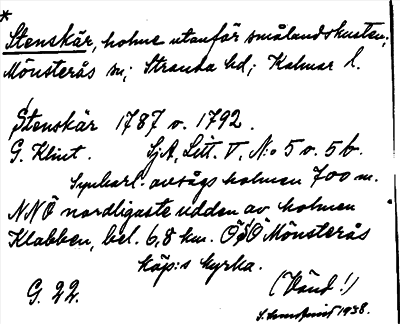 *
Stenskär, holme utanför smålandskusten;
Mönsterås sn; Stranda hd; Kalmar l.
Stenskär 1787 o. 1792.
G. Klint. SjA, Litt. V, N:o 5 o. 5 b.
Synbarl. avsågs holmen 700 m.
NNÖ nordligaste udden av holmen
Klabben, bel. 6,8 km. ÖSÖ Mönsterås
köp:s kyrka.
G. 22. (Vänd!)
1938.